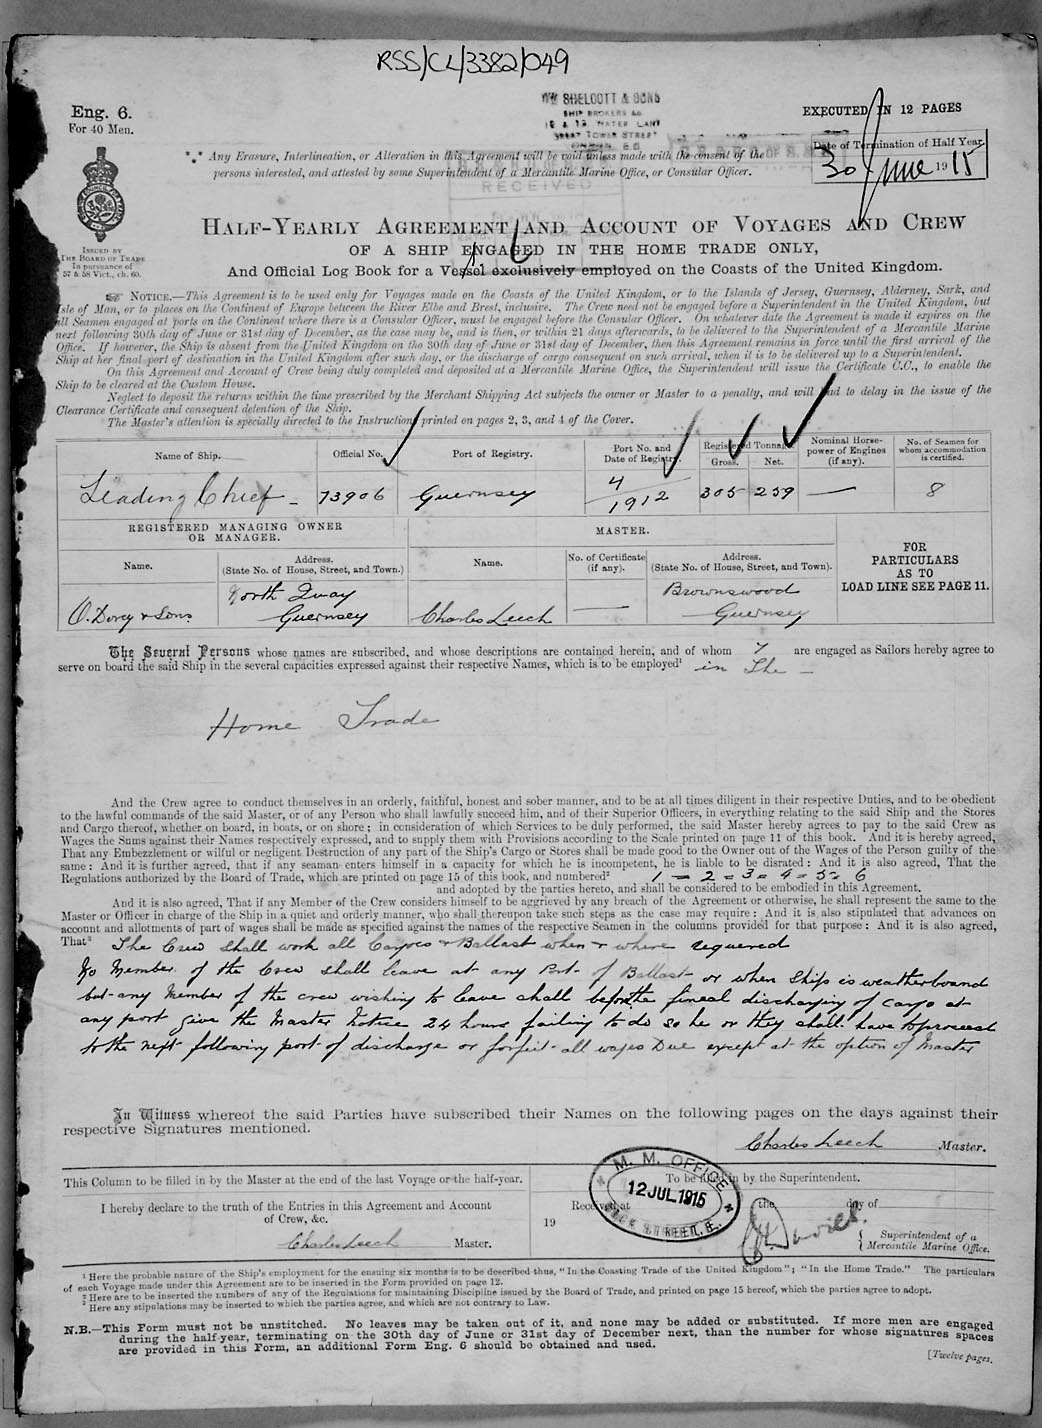 RSS/CL/3382/049
Eng. 6.
For 40 Men.
WM SHELCOTT & SONS
SHIP BROKERS &c
GREAT TOWER STREET
EXECUTED IN 12 PAGES
Date of Termination of Half Year
30 June 1915
*** Any Erasure, Interlineation, or Alteration in this Agreement will be void unless made with the consent of the
persons interested, and attested by some Superintendent of a Mercantile Marine Office, or Consular Officer.
RECEIVED
ISSUED BY
THE BOARD OF TRADE
In pursuance of
57 & 58 Vict., ch. 60.
HALF-YEARLY AGREEMENT AND ACCOUNT OF VOYAGES AND CREW
OF A SHIP ENGAGED IN THE HOME TRADE ONLY,
And Official Log Book for a Vessel exclusively employed on the Coasts of the United Kingdom.
NOTICE.—This Agreement is to be used only for Voyages made on the Coasts of the United Kingdom, or to the Islands of Jersey, Guernsey, Alderney, Sark, and
Isle of Man, or to places on the Continent of Europe between the River Elbe and Brest, inclusive. The Crew need not be engaged before a Superintendent in the United Kingdom, but
all Seamen engaged at ports on the Continent where there is a Consular Officer, must be engaged before the Consular Officer. On whatever date the Agreement is made it expires on the
next following 30th day of June or 31st day of December, as the case may be, and is then, or within 21 days afterwards, to be delivered to the Superintendent of a Mercantile Marine
Office. If however, the Ship is absent from the United Kingdom on the 30th day of June or 31st day of December, then this Agreement remains in force until the first arrival of the
Ship at her final port of destination in the United Kingdom after such day, or the discharge of cargo consequent on such arrival, when it is to be delivered up to a Superintendent.
On this Agreement and Account of Crew being duly completed and deposited at a Mercantile Marine Office, the Superintendent will issue the Certificate C.C., to enable the
Ship to be cleared at the Custom House.
Neglect to deposit the returns within the time prescribed by the Merchant Shipping Act subjects the owner or Master to a penalty, and will lead to delay in the issue of the
Clearance Certificate and consequent detention of the Ship.
The Master's attention is specially directed to the Instructions printed on pages 2, 3, and 4 of the Cover.
Name of Ship. Official No. Port of Registry. Port No. and Date of Registry. Registered Tonnage. Gross. Net. Nominal Horse-power of Engines (if any). No. of Seamen for whom accommodation is certified.
Leading Chief - 73906 Guernsey 4/1912 305 259 — 8
REGISTERED MANAGING OWNER
OR MANAGER.
MASTER.
FOR
PARTICULARS
AS TO
LOAD LINE SEE PAGE 11.
Name. Address. (State No. of House, Street, and Town.) Name. No. of Certificate (if any). Address. (State No. of House, Street, and Town).
O. Dorey & Sons North Quay Guernsey Charles Leech — Brownswood Guernsey
The Several Persons whose names are subscribed, and whose descriptions are contained herein, and of whom 7 are engaged as Sailors hereby agree to
serve on board the said Ship in the several capacities expressed against their respective Names, which is to be employed¹ in The -
Home Trade
And the Crew agree to conduct themselves in an orderly, faithful, honest and sober manner, and to be at all times diligent in their respective Duties, and to be obedient
to the lawful commands of the said Master, or of any Person who shall lawfully succeed him, and of their Superior Officers, in everything relating to the said Ship and the Stores
and Cargo thereof, whether on board, in boats, or on shore; in consideration of which Services to be duly performed, the said Master hereby agrees to pay to the said Crew as
Wages the Sums against their Names respectively expressed, and to supply them with Provisions according to the Scale printed on page 11 of this book. And it is hereby agreed,
That any Embezzlement or wilful or negligent Destruction of any part of the Ship's Cargo or Stores shall be made good to the Owner out of the Wages of the Person guilty of the
same: And it is further agreed, that if any seaman enters himself in a capacity for which he is incompetent, he is liable to be disrated: And it is also agreed, That the
Regulations authorized by the Board of Trade, which are printed on page 15 of this book, and numbered² 1 = 2 = 3 = 4 = 5 = 6
and adopted by the parties hereto, and shall be considered to be embodied in this Agreement.
And it is also agreed, That if any Member of the Crew considers himself to be aggrieved by any breach of the Agreement or otherwise, he shall represent the same to the
Master or Officer in charge of the Ship in a quiet and orderly manner, who shall thereupon take such steps as the case may require: And it is also stipulated that advances on
account and allotments of part of wages shall be made as specified against the names of the respective Seamen in the columns provided for that purpose: And it is also agreed,
That³ The Crew shall work all Cargoes & Ballast when & where requered
No Member of the Crew shall leave at any Port of Ballast or when Ship is weatherbound
but any Member of the crew wishing to leave shall before the fineal discharging of cargo at
any port give the Master Notice 24 hours failing to do so he or they shall have to proceed
to the next following port of discharge or forfeit all wages Due except at the option of Master
In Witness whereof the said Parties have subscribed their Names on the following pages on the days against their
respective Signatures mentioned.
Charles Leech Master.
This Column to be filled in by the Master at the end of the last Voyage or the half-year.
I hereby declare to the truth of the Entries in this Agreement and Account
of Crew, &c.
Charles Leech Master.
To be filled in by the Superintendent.
Received at the day of
19
M. M. OFFICE
12 JUL 1915
STREET, E.
Davies
Superintendent of a
Mercantile Marine Office.
¹ Here the probable nature of the Ship's employment for the ensuing six months is to be described thus, "In the Coasting Trade of the United Kingdom"; "In the Home Trade." The particulars
of each Voyage made under this Agreement are to be inserted in the Form provided on page 12.
² Here are to be inserted the numbers of any of the Regulations for maintaining Discipline issued by the Board of Trade, and printed on page 15 hereof, which the parties agree to adopt.
³ Here any stipulations may be inserted to which the parties agree, and which are not contrary to Law.
N.B.—This Form must not be unstitched. No leaves may be taken out of it, and none may be added or substituted. If more men are engaged
during the half-year, terminating on the 30th day of June or 31st day of December next, than the number for whose signatures spaces
are provided in this Form, an additional Form Eng. 6 should be obtained and used.
[Twelve pages.